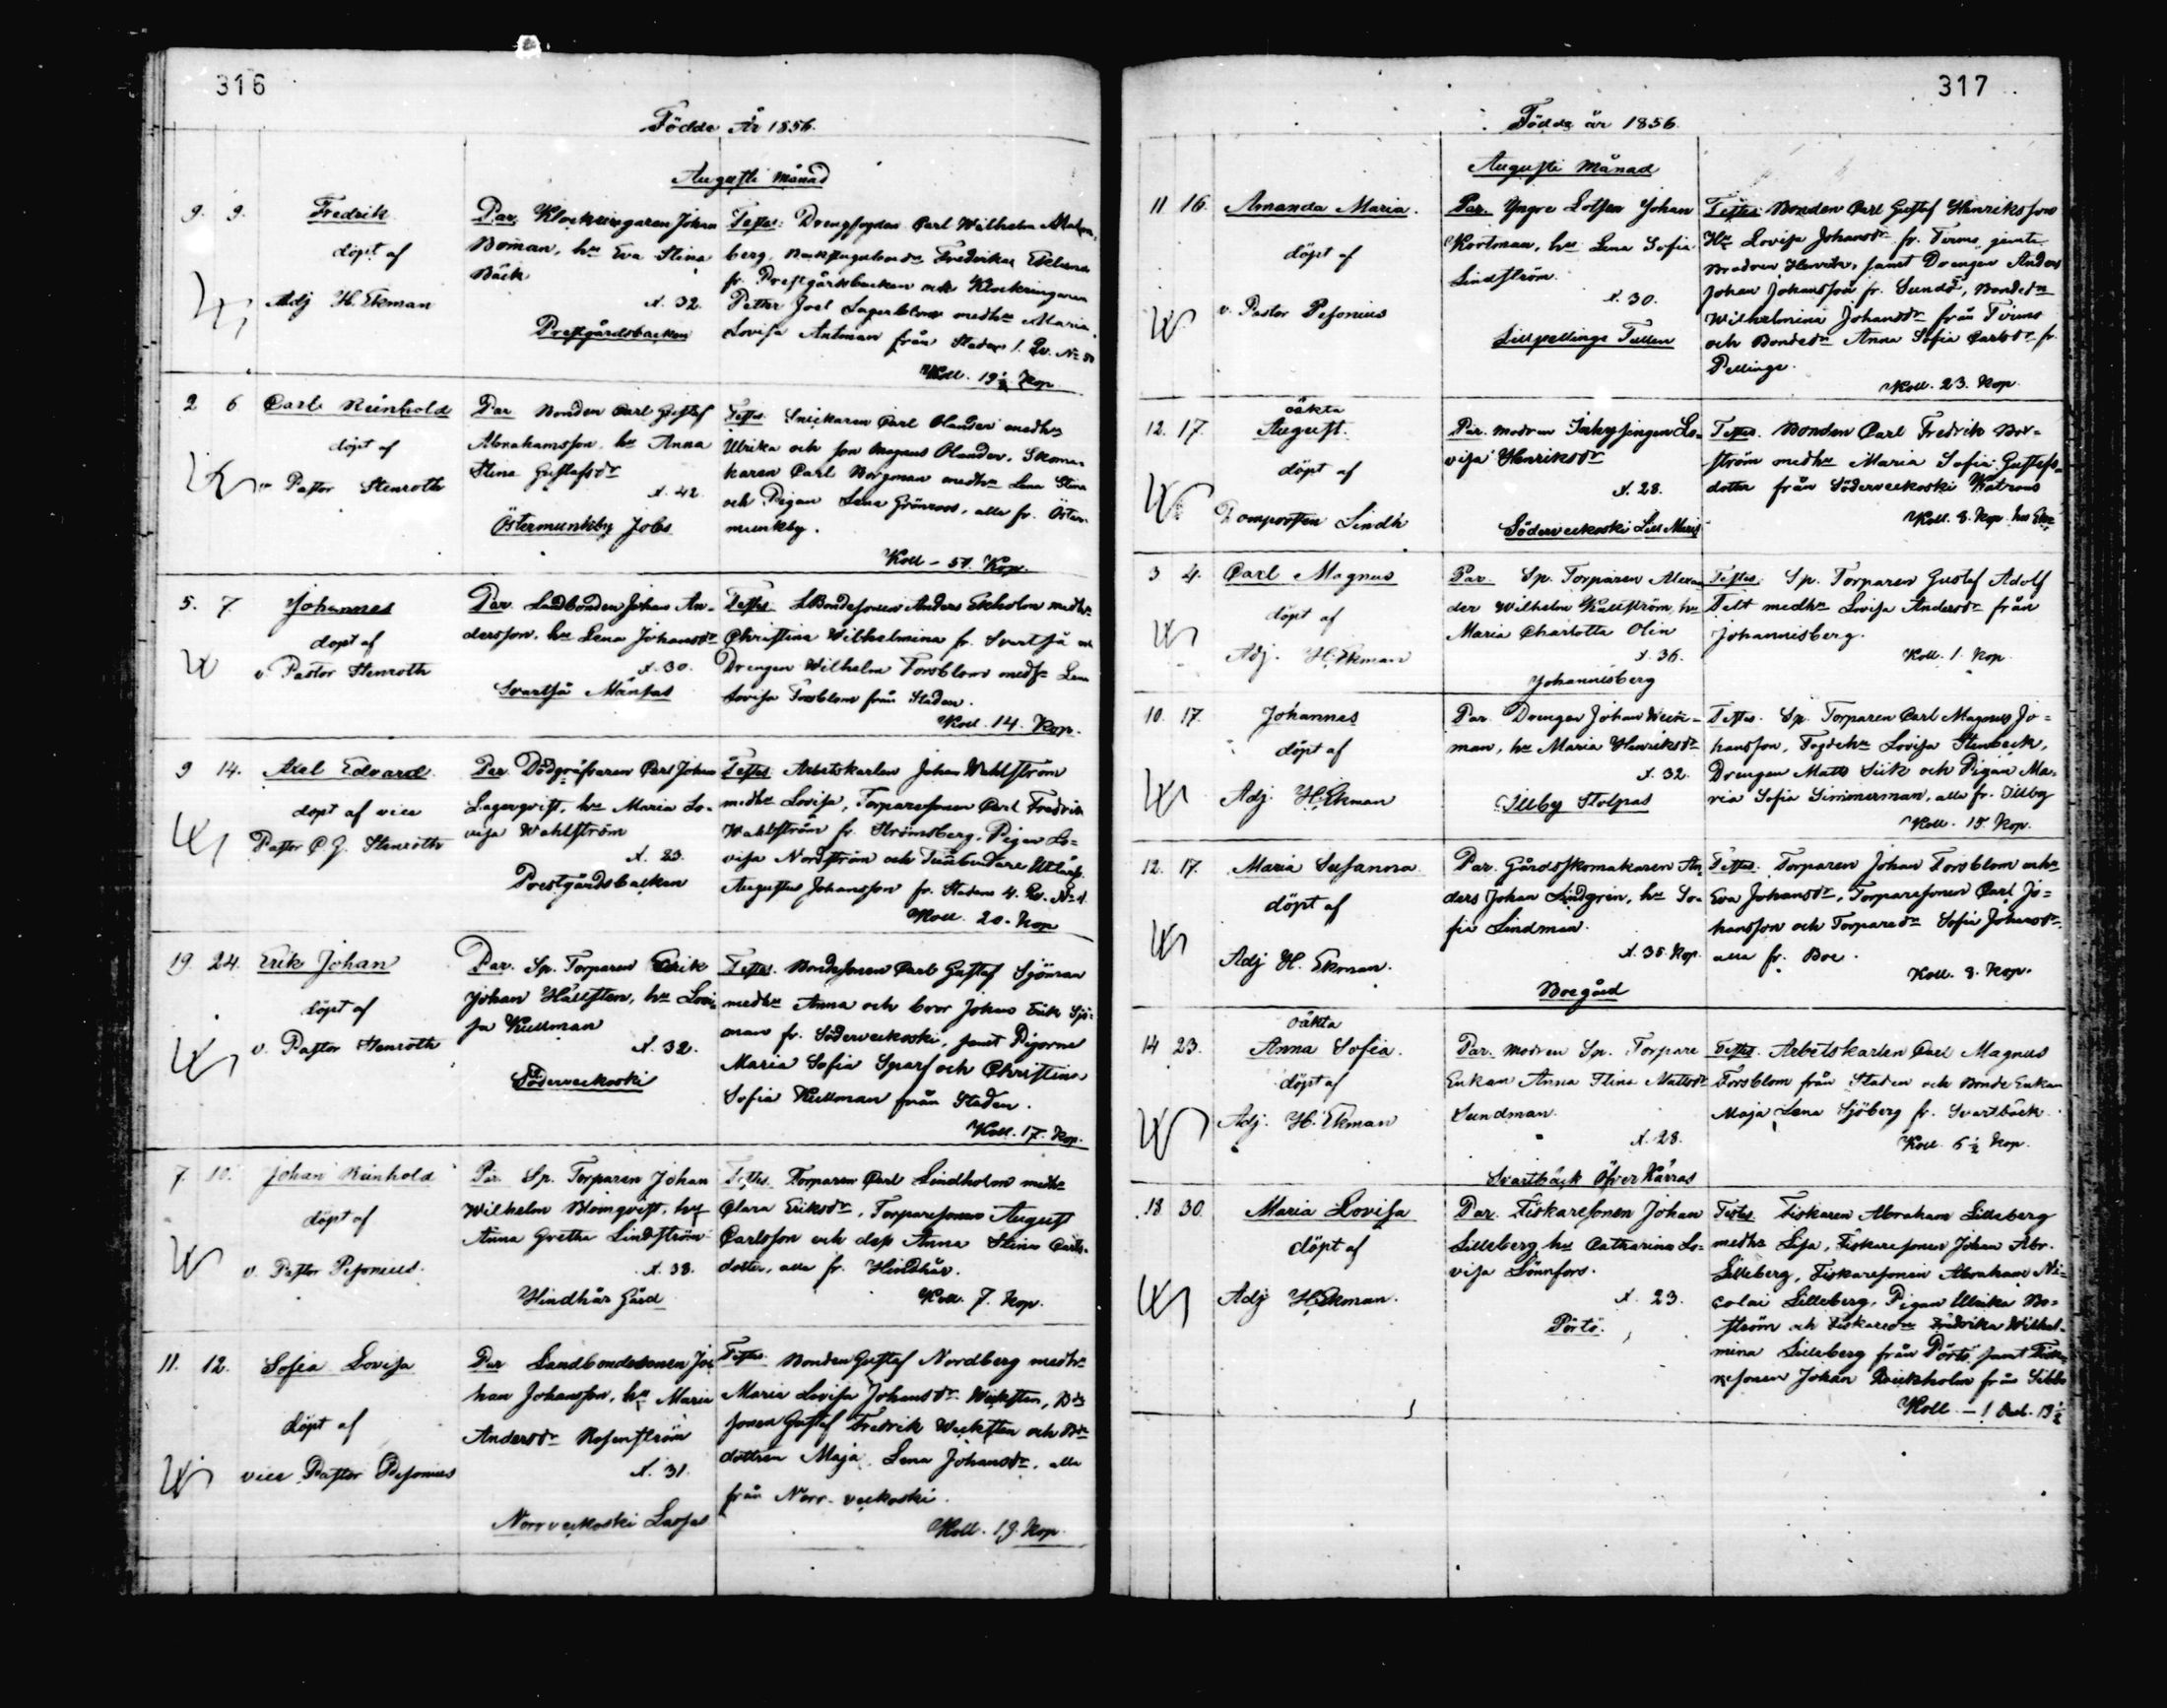 316
Födde År 1856.
Augusti Månad
9. 9. Fredrik
döpt af
Adj H. Ekman
Par. Klockringaren Johan
Boman, hu Eva Stina
Bäck
A. 32.
Prestgårdsbacken
Testes: Drengfogden Carl Wilhelm
berg, Fredrika Eklund
fr. Prestgårdsbacken och Klockringaren
Petter Joel Lagerblom medhu Maria
Lovisa Antman från Staden 1. Qv. No
Koll. 19 1/2 Kop
2 6 Carl Reinhold
döpt af
v. Pastor Stenroth
Par Bonden Carl Gustaf
Abrahamsson, hu Anna
Stina Gustafsdr
A. 42.
Östermunkby Jobs
Testes Snickaren Carl Olander medhu
Ulrika och son Magnus Olander, Skoma-
karen Carl Borgman medhu Lena Stina
och Pigan Lena Grönroos, alla fr. Öster-
munkby.
Koll - 57. Kop.
5. 7 Johannes
döpt af
v. Pastor Stenroth
Par. Landbonden Johan An-
dersson, hu Lena Johansdr
A. 30.
Svartså Månsas
Testes LBondesonen Anders Ekholm medhu
Christina Wilhelmina fr. Svartså och
Drengen Wilhelm Forsblom medh Lena
Lovisa Forsblom från Staden.
Koll. 14. Kop.
9 14. Axel Edvard
döpt af vice
Pastor C. G. Stenroth
Par Dödgräfvaren Carl Johan
Lagerqvist, hu Maria Lo-
visa Wahlström
A. 23.
Prestgårdsbacken
Testes Arbetskarlen Johan Wahlström
medhu Lovisa, Torparesonen Carl Fredrik
Wahlström fr. Strömsberg, Pigan Lo-
visa Nordström och
Augustus Johansson fr. Staden 4. Qv. No
Koll. 20. Kop
19. 24. Erik Johan
döpt af
v. Pastor Stenroth
Par. Sp. Torparen Erik
Johan Hällsten, hu Lovi-
sa Kullman
A. 32.
Söderveckoski
Testes. Bondesonen Carl Gustaf Sjöman
medhu Anna och bror Johan Erik Sjö-
man fr. Söderveckoski, samt Pigorna
Maria Sofia Sparf och Christina
Sofia Kullman från Staden.
Koll. 17. Kop.
7. 10. Johan Reinhold
döpt af
v. Pastor Pesonius.
Par. Sp. Torparen Johan
Wilhelm Blomqvist, hu
Anna Gretha Lindström
A. 38.
Hindhår Gård
Testes Torparen Carl Lindholm medhu
Clara Eriksdr, Torparesonen August
Carlsson och dess Anna Stina Carls-
dotter, alla fr. Hindhår.
Koll. 7. Kop.
11. 12. Sofia Lovisa
döpt af
vice Pastor Pesonius
Par Landbondesonen Jo-
han Johansson, hu Maria
Andersdr Rosenström
A. 31.
Norrveckoski Lassas
Testes. Bonden Gustaf Nordberg medhu
Maria Lovisa Johansdr Wecksten, Bde
sonen Gustaf Fredrik Wecksten och Bde
dottren Maja Lena Johansdr, alla
från Norr-veckoski.
Koll. 19. Kop.
317
Födde år 1856
Augusti Månad
11 16. Amanda Maria.
döpt af
v. Pastor Pesonius
Par. Yngre Lotsen Johan
Kortman, hu Lena Sofia
Lindström.
A. 30.
Lillpellinge Tullen
Testes Bonden Carl Gustaf Henriksson
Hu Lovisa Johansdr fr. Tirmo, jemte
Brodren Henrik, samt Drengen Anders
Johan Johansson fr. Sundö, Bondedn
Wilhelmina Johansdr från Tirmo
och Bondedn Anna Sofia Carlsdr fr.
Pellinge.
Koll. 23. Kop.
12. 17. oäkta
August.
döpt af
Domprosten Lindh
Par. modren Inhysingen Lo-
visa Henriksdr
A. 28.
Söderveckoski Lill Maris
Testes. Bonden Carl Fredrik Bor-
ström medhu Maria Sofia Gustafs-
dotter från Söderveckoski Katrins
Koll. 8. Kop.
3 4. Carl Magnus
döpt af
Adj. H. Ekman
Par. Sp. Torparen Alexan
der Wilhelm Källström, hu
Maria Charlotta Olin
A. 36.
Johannisberg
Testes. Sp. Torparen Gustaf Adolf
Tilt medhu Lovisa Andersdr från
Johannisberg.
Koll. 1. Kop
10. 17. Johannes
döpt af
Adj. H. Ekman
Par. Drengen Johan Wein-
man, hu Maria Henriksdr
A. 32.
Illby Stolpas
Testes. Sp. Torparen Carl Magnus Jo-
hansson, Fogdehu Lovisa Stenbeck,
Drengen Matts Siik och Pigan Ma-
ria Sofia Simmerman, alla fr. Illby
Koll. 15. Kop.
12. 17. Maria Susanna.
döpt af
Adj H. Ekman.
Par. Gårdsskomakaren An-
ders Johan Lindgrén, hu So-
fia Lindman.
A. 35. Kop.
Boegård
Testes. Torparen Johan Forsblom
Eva Johansdr, Torparesonen Carl Jo-
hansson och Torparedr Sofia Johansdr,
alla fr. Boe.
Koll. 8. Kop.
14 23. oäkta
Anna Sofia.
döpt af
Adj. H. Ekman
Par. modren Sp. Torpare
Enkan Anna Stina Mattsdr
Sundman.
A. 28.
Svartbäck Öfver Kärras
Testes. Arbetskarlen Carl Magnus
Forsblom från Staden och Bonde Enkan
Maja Lena Sjöberg fr. Svartbäck.
Koll. 6 1/2 Kop.
18 30. Maria Lovisa
döpt af
Adj H. Ekman.
Par. Fiskaresonen Johan
Lilleberg, hu Catharina Lo-
visa Lönnfors.
A. 23.
Pörtö.
Testes Fiskaren Abraham Lilleberg
medhu Lisa, Fiskaresonen Johan Abr.
Lilleberg, Fiskaresonen Abraham Ni-
colai Lilleberg, Pigan Ulrika Bo-
ström och Fiskaredn Fredrika Wilhel-
mina Lilleberg från Pörtö, samt Fiska-
resonen Johan från Sibbo
Koll. - 1 Rub. 13 1/2